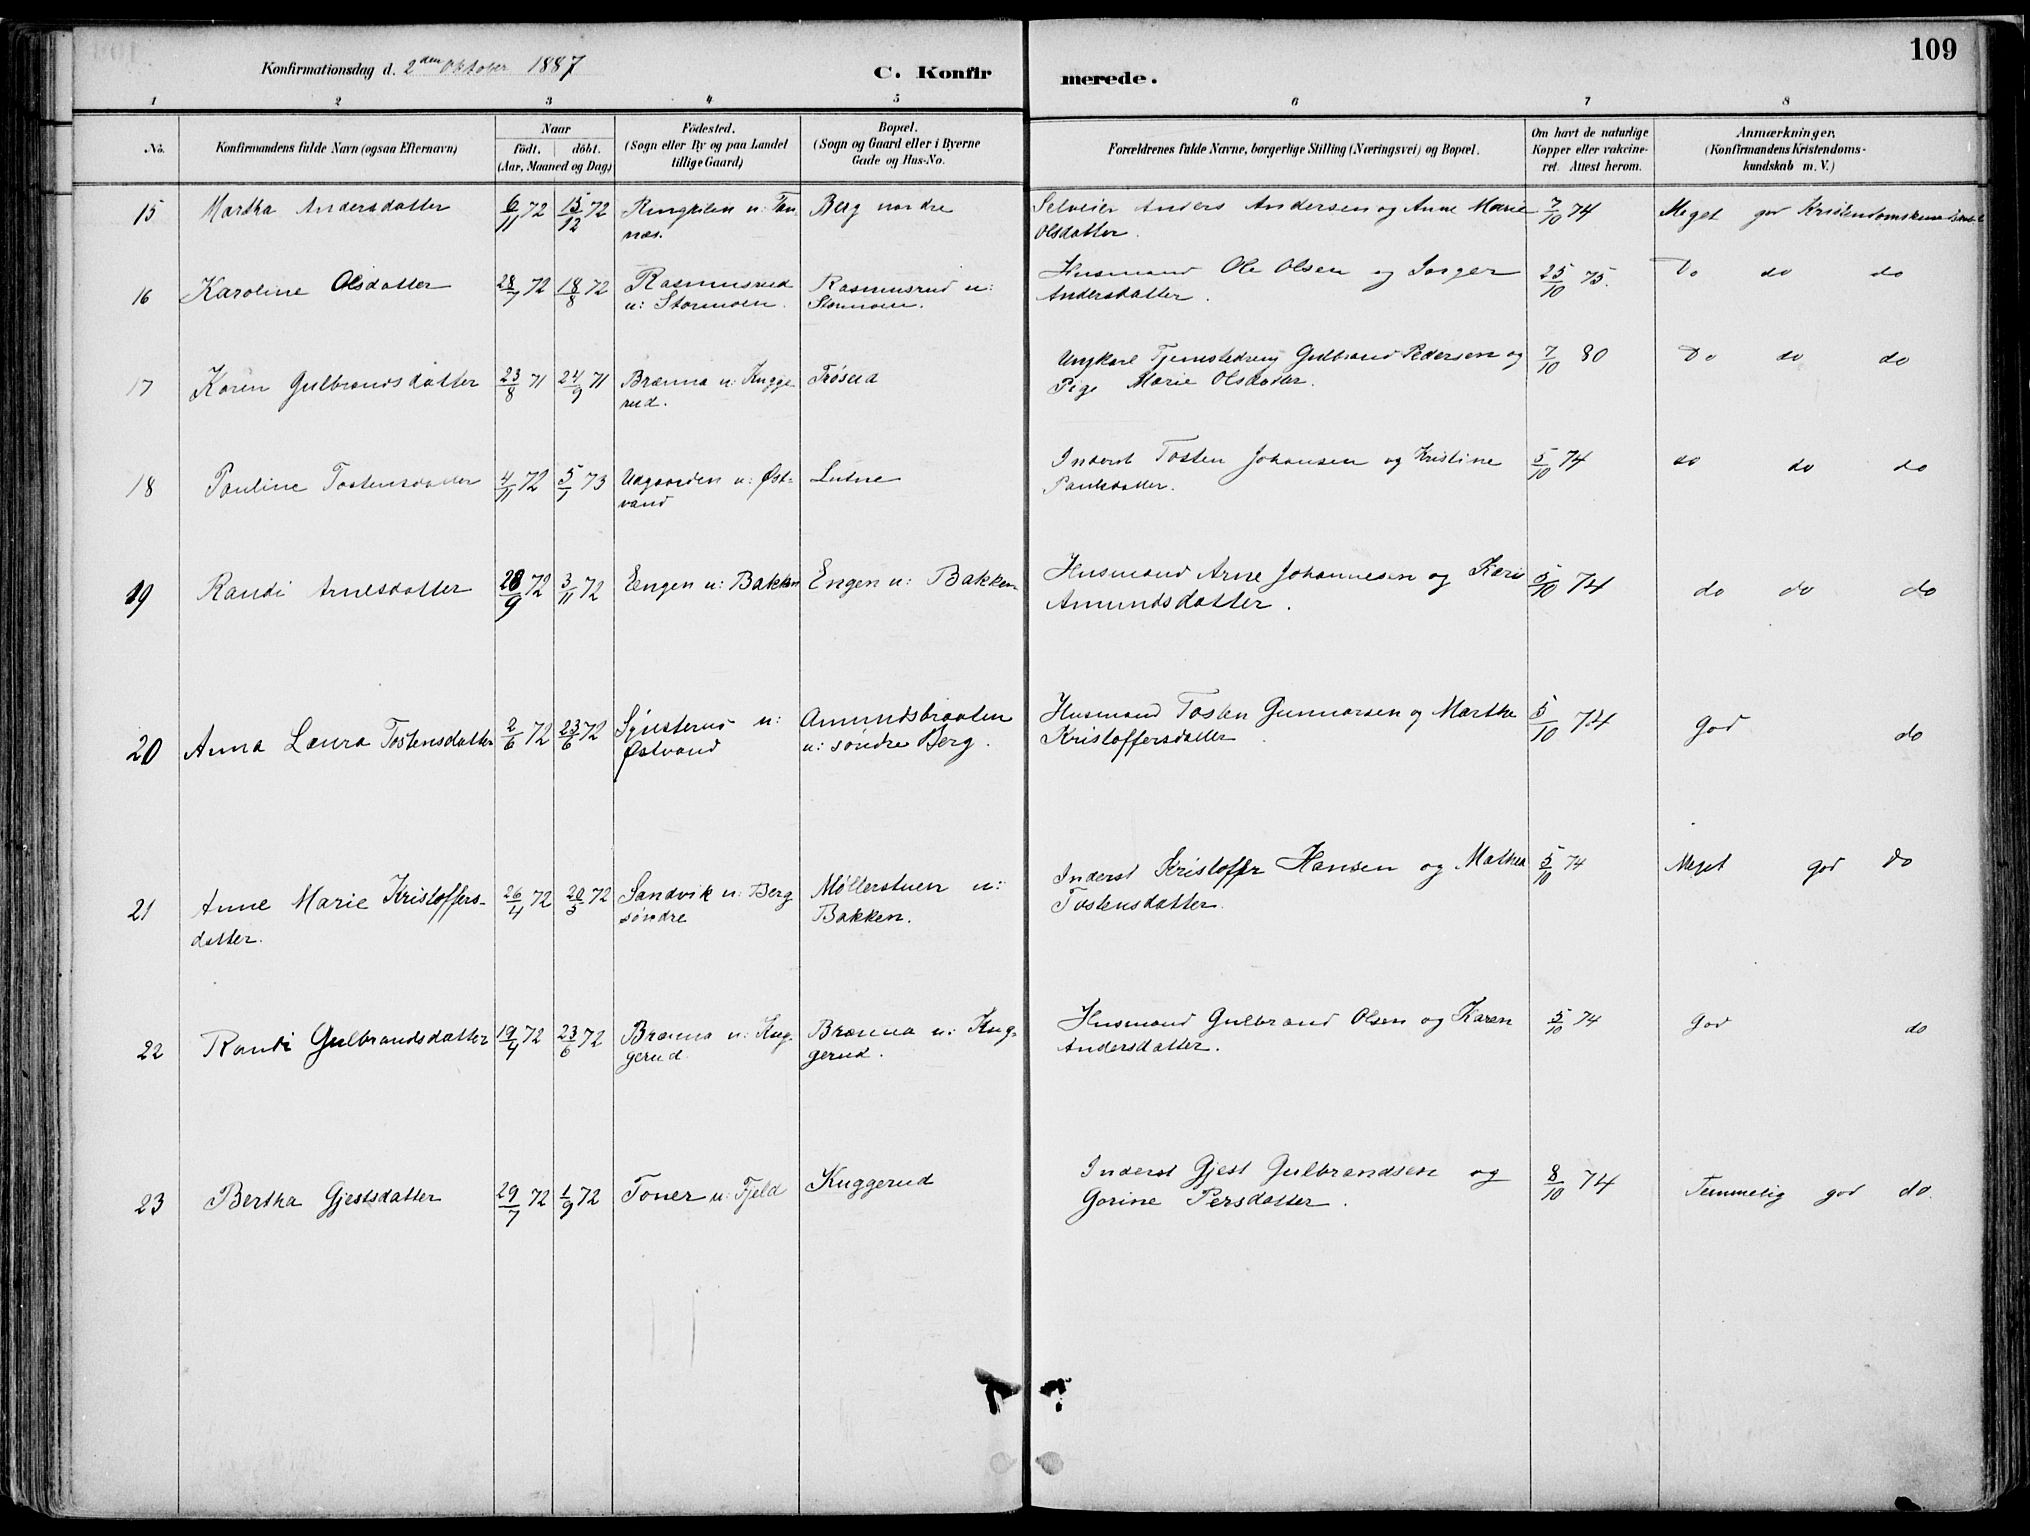 109
Konfirmationsdag d. 2den Oktober 1887
C. Konfirmerede.
1 2 3 4 5 6 7 8
No. Konfirmandens fulde Navn (ogsaa Efternavn) Naar födt. döbt. (Aar, Maaned og Dag) Födested. (Sogn eller By og paa Landet tillige Gaard) Bopæl. (Sogn og Gaard eller i Byerne Gade og Hus-No. Forældrenes fulde Navne, borgerlige Stilling (Næringsvei) og Bopæl. Om havt de naturlige Kopper eller vakcineret. Attest herom. Anmærkninger, (Konfirmandens Kristendomskundskab m. V.)
15 Martha Andersdatter 6/11 72 15/12 72 u: Tannæs. Berg nordre Selveier Anders Andersen og Anne Marie Olsdatter. 7/10 74 Meget god Kristendomskundskab
16 Karoline Olsdatter 28/7 72 18/8 72 Rasmusrud u: Stormoen. Rasmusrud u: Stormoen. Husmand Ole Olsen og Andersdatter. 25/10 75. Do do do
17 Karen Gulbrandsdatter 23/8 71 24/9 71 Brænna u: Kuggerud. Trøseid Ungkarl Tjenestedreng Gulbrand Pedersen og Pige Marie Olsdatter. 7/10 80 Do do do
18 Pauline Tostensdatter 4/11 72 5/1 73 Udgaarden u: Østvand Lutne Inderst Tosten Johansen og Kristine Paulsdatter. 5/10 74 do do do
19 Randi Arnesdatter 28/9 72 3/11 72 Eengen u: Bakken Engen u: Bakken Husmand Arne Johannesen og Kari Amundsdatter. 5/10 74 do do do
20 Anna Laura Tostensdatter 2/6 72 23/6 72 u: Østvand Amundsbraaten u: søndre Berg. Husmand Tosten Gunnarsen og Martha Kristoffersdatter. 5/10 74 God do
21 Anne Marie Kristoffersdatter. 26/4 72 20/5 72 Sandvik u: Berg søndre Møllerstuen u: Bakken. Inderst Kristoffer Hansen og Mathea Tostensdatter. 5/10 74 Meget god do
22 Randi Gulbrandsdatter 19/4 72 23/6 72 Brænna u: Kuggerud. Brænna u: Kuggerud. Husmand Gulbrand Olsen og Karen Andersdatter. 5/10 74 God do
23 Bertha Gjestsdatter 29/7 72 1/9 72 Toner u: Fjeld Kuggerud Inderst Gjest Gulbrandsen og Gorine Persdatter. 8/10 74 Temmelig god do.